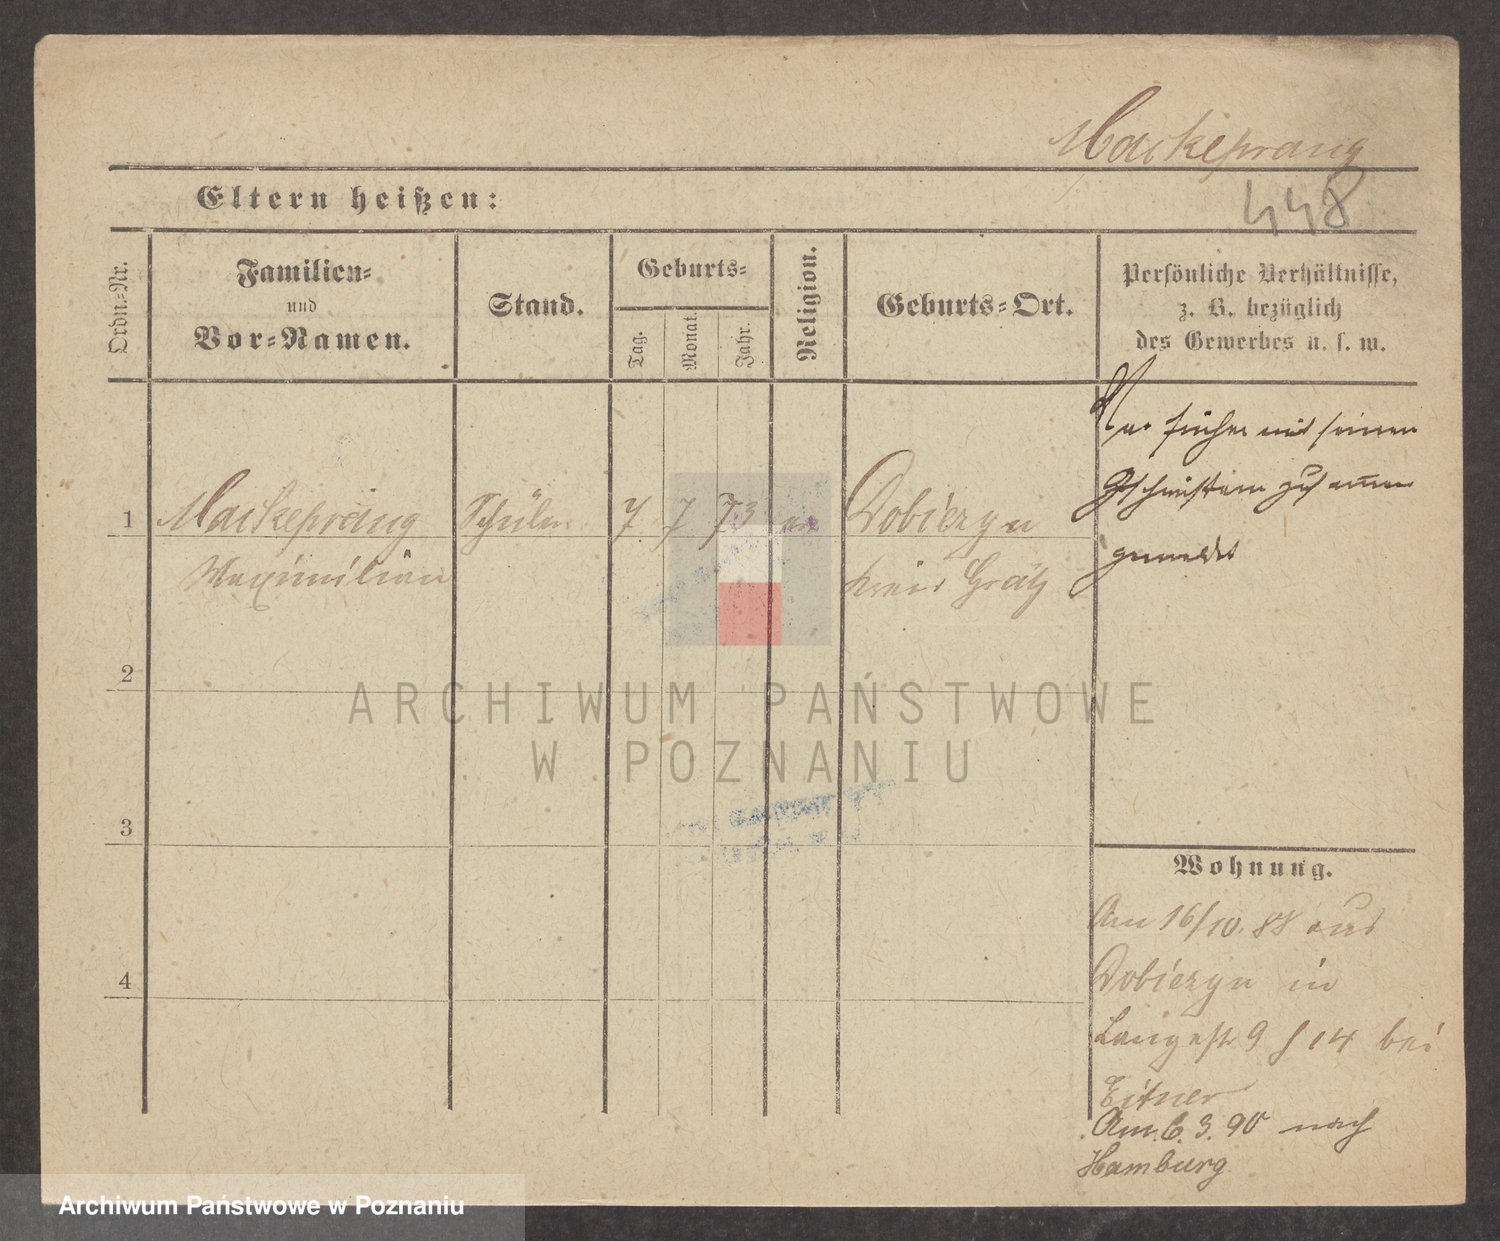 Mackeprang
448
Eltern heißen:
Ordn.-Nr.
Familien-
und
Vor-Namen.
Stand.
Geburts-
Tag.
Monat.
Jahr.
Religion.
Geburts-Ort.
Persönliche Verhältnisse,
z. B. bezüglich
des Gewerbes u. s. w.
War früher mit seinen
Geschwistern zusammen
gemeldet
1
Mackeprang
Schüler
7
7
73
ev
Dobiezyn
Maximilian
Kreis Grätz
2
ARCHIWUM PAŃSTWOWE
W POZNANIU
3
Wohnung.
Am 16/10. 88 aus
Dobiezyn in
Langestr 9 / 14 bei
4
Eitner
Am 6. 3. 90 nach
Hamburg
Archiwum Państwowe w Poznaniu